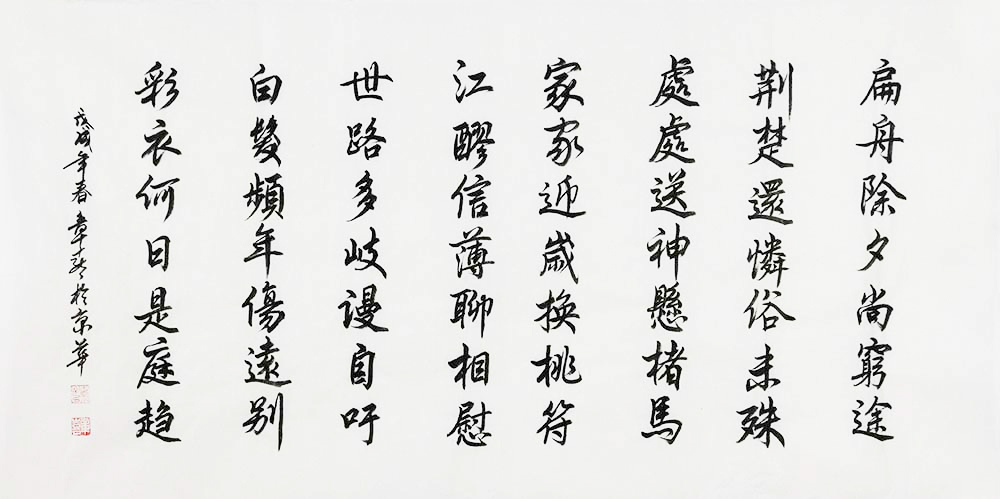 扁舟除夕尚窮途
荆楚還憐俗未殊
處處送神懸楮馬
家家迎歲換桃符
江醪信薄聊相慰
世路多岐謾自吁
白髮頻年傷遠別
彩衣何日是庭趋
戊戌年春章春於京華